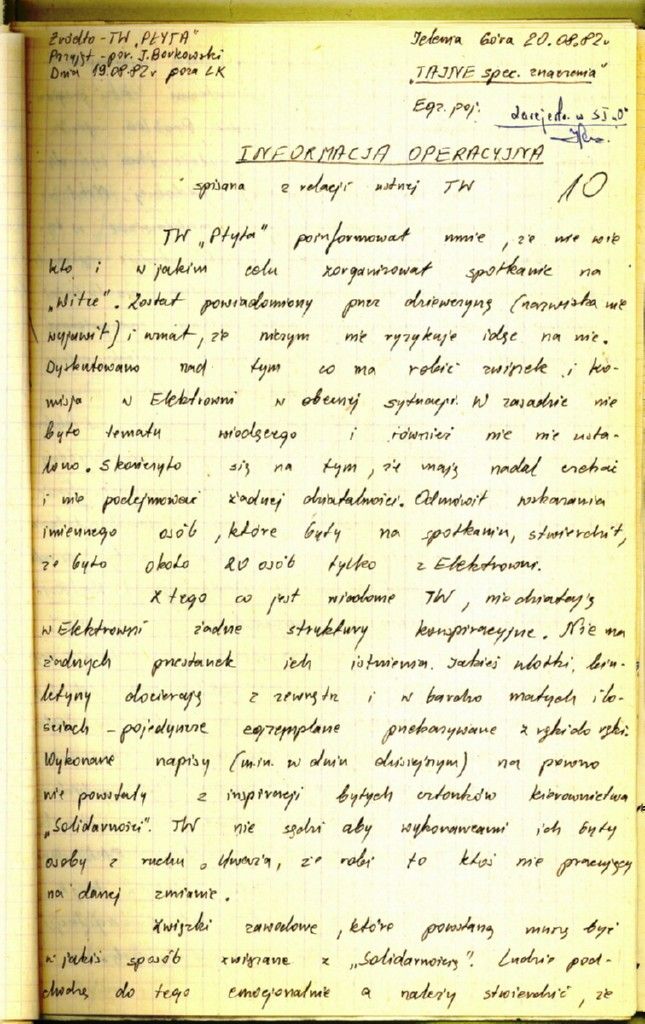 Źródło - TW „PŁYTA"
Przyjął - por. J. Borkowski
Dnia 19.08.82r poza LK
Jelenia Góra 20.08.82r
„TAJNE spec. znaczenia"
Egz. poj.
w SI „O"
INFORMACJA OPERACYJNA
spisana z relacji ustnej TW
10
TW „Płyta" poinformował mnie, że nie wie
kto i w jakim celu zorganizował spotkanie na
„Witze". Został powiadomiony przez dziewczynę (nazwiska nie
wyjawił) i uznał, że niczym nie ryzykuje idąc na nie.
Dyskutowano nad tym co ma robić związek i ko-
misja w Elektrowni w obecnej sytuacji. W zasadzie nie
było tematu wiodącego i również nic nie usta-
lono. Skończyło się na tym, że mają nadal czekać
i nie podejmować żadnej działalności. Odmówił wskazania
imiennego osób, które były na spotkaniu, stwierdził,
że było około 20 osób tylko z Elektrowni.
Z tego co jest wiadome TW, nie działają
w Elektrowni żadne struktury konspiracyjne. Nie ma
żadnych przesłanek ich istnienia. Jakieś ulotki, biu-
letyny docierają z zewnątrz i w bardzo małych ilo-
ściach - pojedyncze egzemplarze przekazywane z ręki do ręki.
Wykonane napisy (m.in. w dniu dzisiejszym) na pewno
nie powstały z inspiracji byłych członków kierownictwa
„Solidarności". TW nie sądzi aby wykonawcami ich były
osoby z ruchu. Uważa, że robi to ktoś nie pracujący
na danej zmianie.
Związki zawodowe, które powstaną muszą być
w jakiś sposób związane z „Solidarnością". Ludzie pod-
chodzą do tego emocjonalnie a należy stwierdzić, że